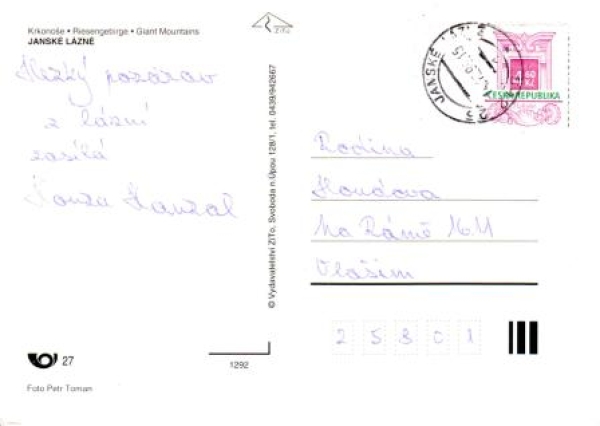 Krkonoše • Riesengebirge • Giant Mountains
JANSKÉ LÁZNĚ
Hezký pozdrav
z lázní
zasílá
Honza Hanzal
ZiTo
© Vydavatelství ZiTo, Svoboda n.Úpou 128/1, tel. 0439/942667
JANSKÉ LÁZNĚ
ČESKÁ REPUBLIKA
Rodina
Houdova
Na Rámě
Vlašim
25801
27
1292
Foto Petr Toman